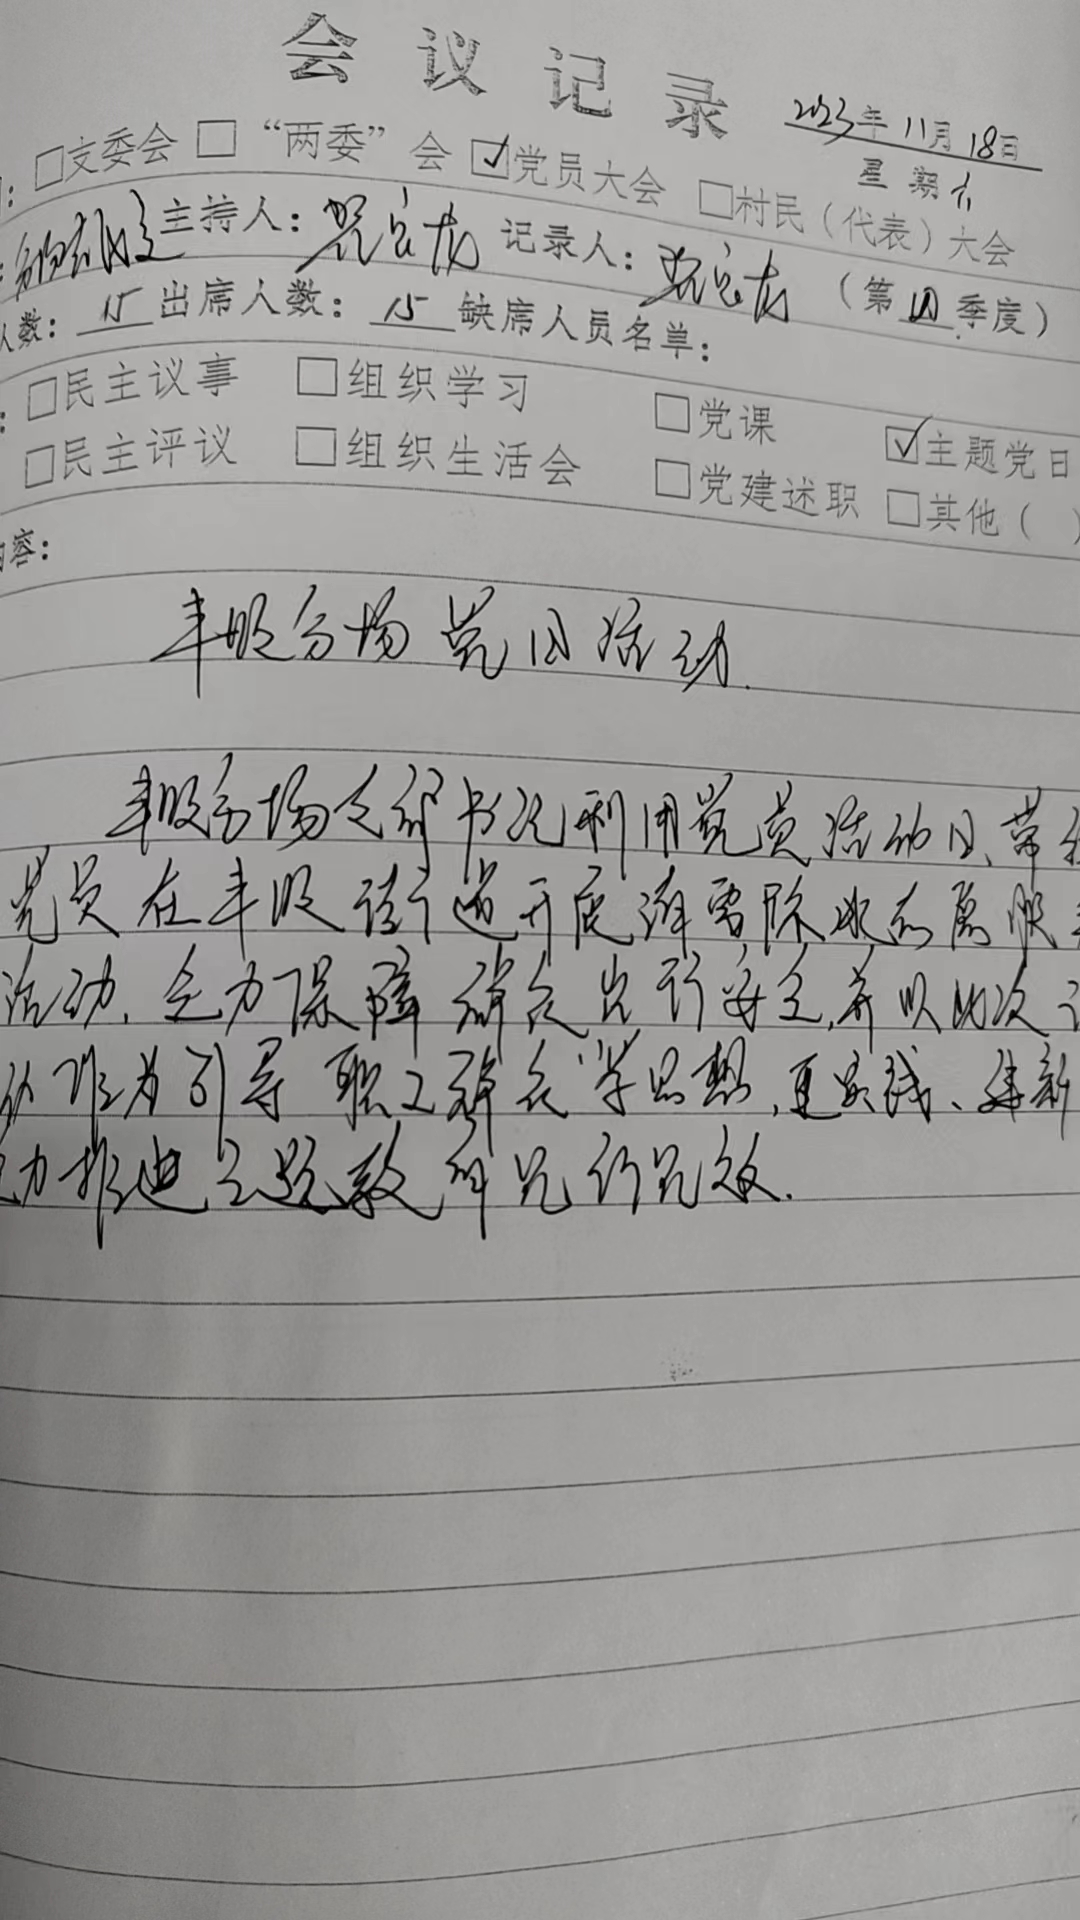 会议记录
2023年11月18日
星期六
：□支委会 □“两委”会 ☑党员大会 □村民（代表）大会
主持人： 记录人： （第四季度）
人数：15 出席人数：15 缺席人员名单：
：□民主议事 □组织学习 □党课 ☑主题党日
□民主评议 □组织生活会 □党建述职 □其他（ ）
内容：
丰收分场党日活动.
丰收分场支部书记利用党员活动日、带
党员在丰收街道开展清雪除冰志愿服
活动.全力保障群众出行安全,并以此次
作为引导职工群众“学思想,重实践、建新
力推进主题教育见行见效.